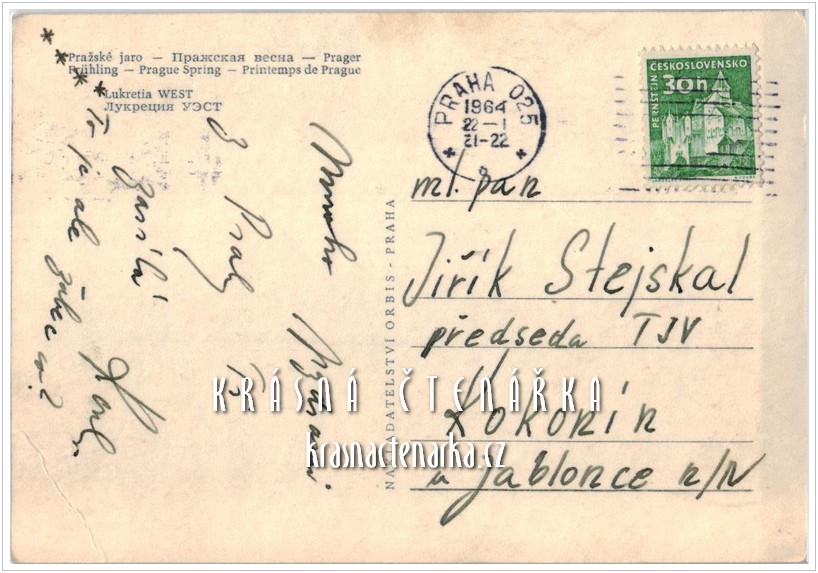 Pražské jaro — Пражская весна — Prager
Frühling — Prague Spring — Printemps de Prague
Lukretia WEST
Лукреция УЭСТ
Mnoho
z Prahy Ti
zasílá
To je ale
NAKLADATELSTVÍ ORBIS - PRAHA
PRAHA 025
1964
22-1
21-22
PERNŠTEJN
ČESKOSLOVENSKO
30h
ml. pan
Jiřík Stejskal
předseda TJV
Kokonín
u Jablonce n/N
KRÁSNÁ ČTENÁŘKA
krasnactenarka.cz